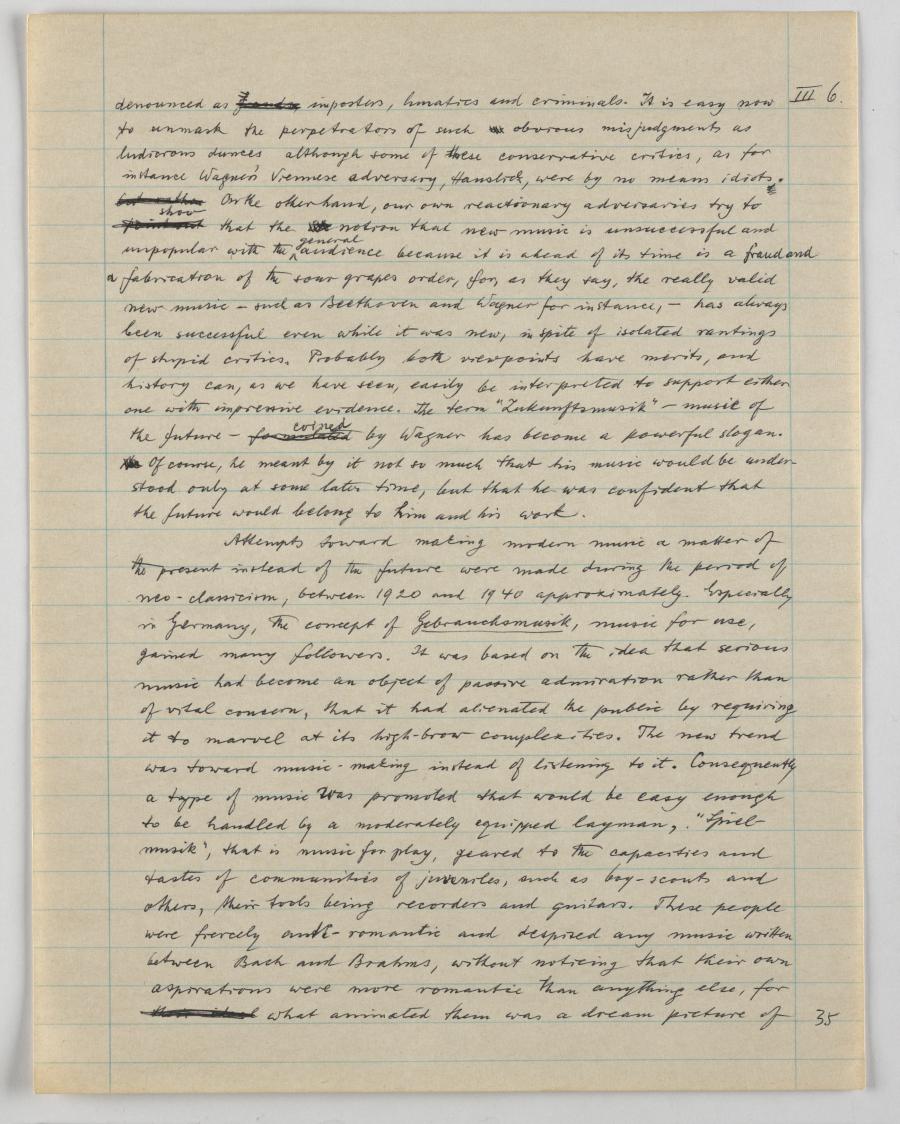 III 6.
denounced as imposters, lunatics and criminals. It is easy now
to unmask the perpetrators of such obvious misjudgments as
ludicrous dunces although some of these conservative critics, as for
instance Wagner's Viennese adversary, Hanslick, were by no means idiots.
but rather On the other hand, our own reactionary adversaries try to
show
point out that the notion that new music is unsuccessful and
general
unpopular with the audience because it is ahead of its time is a fraud and
a fabrication of the sour grapes order, for, as they say, the really valid
new music – such as Beethoven and Wagner for instance, – has always
been successful even while it was new, in spite of isolated rantings
of stupid critics. Probably both viewpoints have merits, and
history can, as we have seen, easily be interpreted to support either
one with impressive evidence. The term "Zukunftsmusik" – music of
coined
the future – formulated by Wagner has become a powerful slogan.
Of course, he meant by it not so much that his music would be under-
stood only at some later time, but that he was confident that
the future would belong to him and his work.
Attempts toward making modern music a matter of
the present instead of the future were made during the period of
neo-classicism, between 1920 and 1940 approximately. Especially
in Germany, the concept of Gebrauchsmusik, music for use,
gained many followers. It was based on the idea that serious
music had become an object of passive admiration rather than
of vital concern, that it had alienated the public by requiring
it to marvel at its high-brow complexities. The new trend
was toward music-making instead of listening to it. Consequently
a type of music was promoted that would be easy enough
to be handled by a moderately equipped layman, "Spiel-
musik", that is music for play, geared to the capacities and
tastes of communities of juveniles, such as boy-scouts and
others, their tools being recorders and guitars. These people
were fiercely anti-romantic and despised any music written
between Bach and Brahms, without noticing that their own
aspirations were more romantic than anything else, for
their ideal what animated them was a dream picture of
35